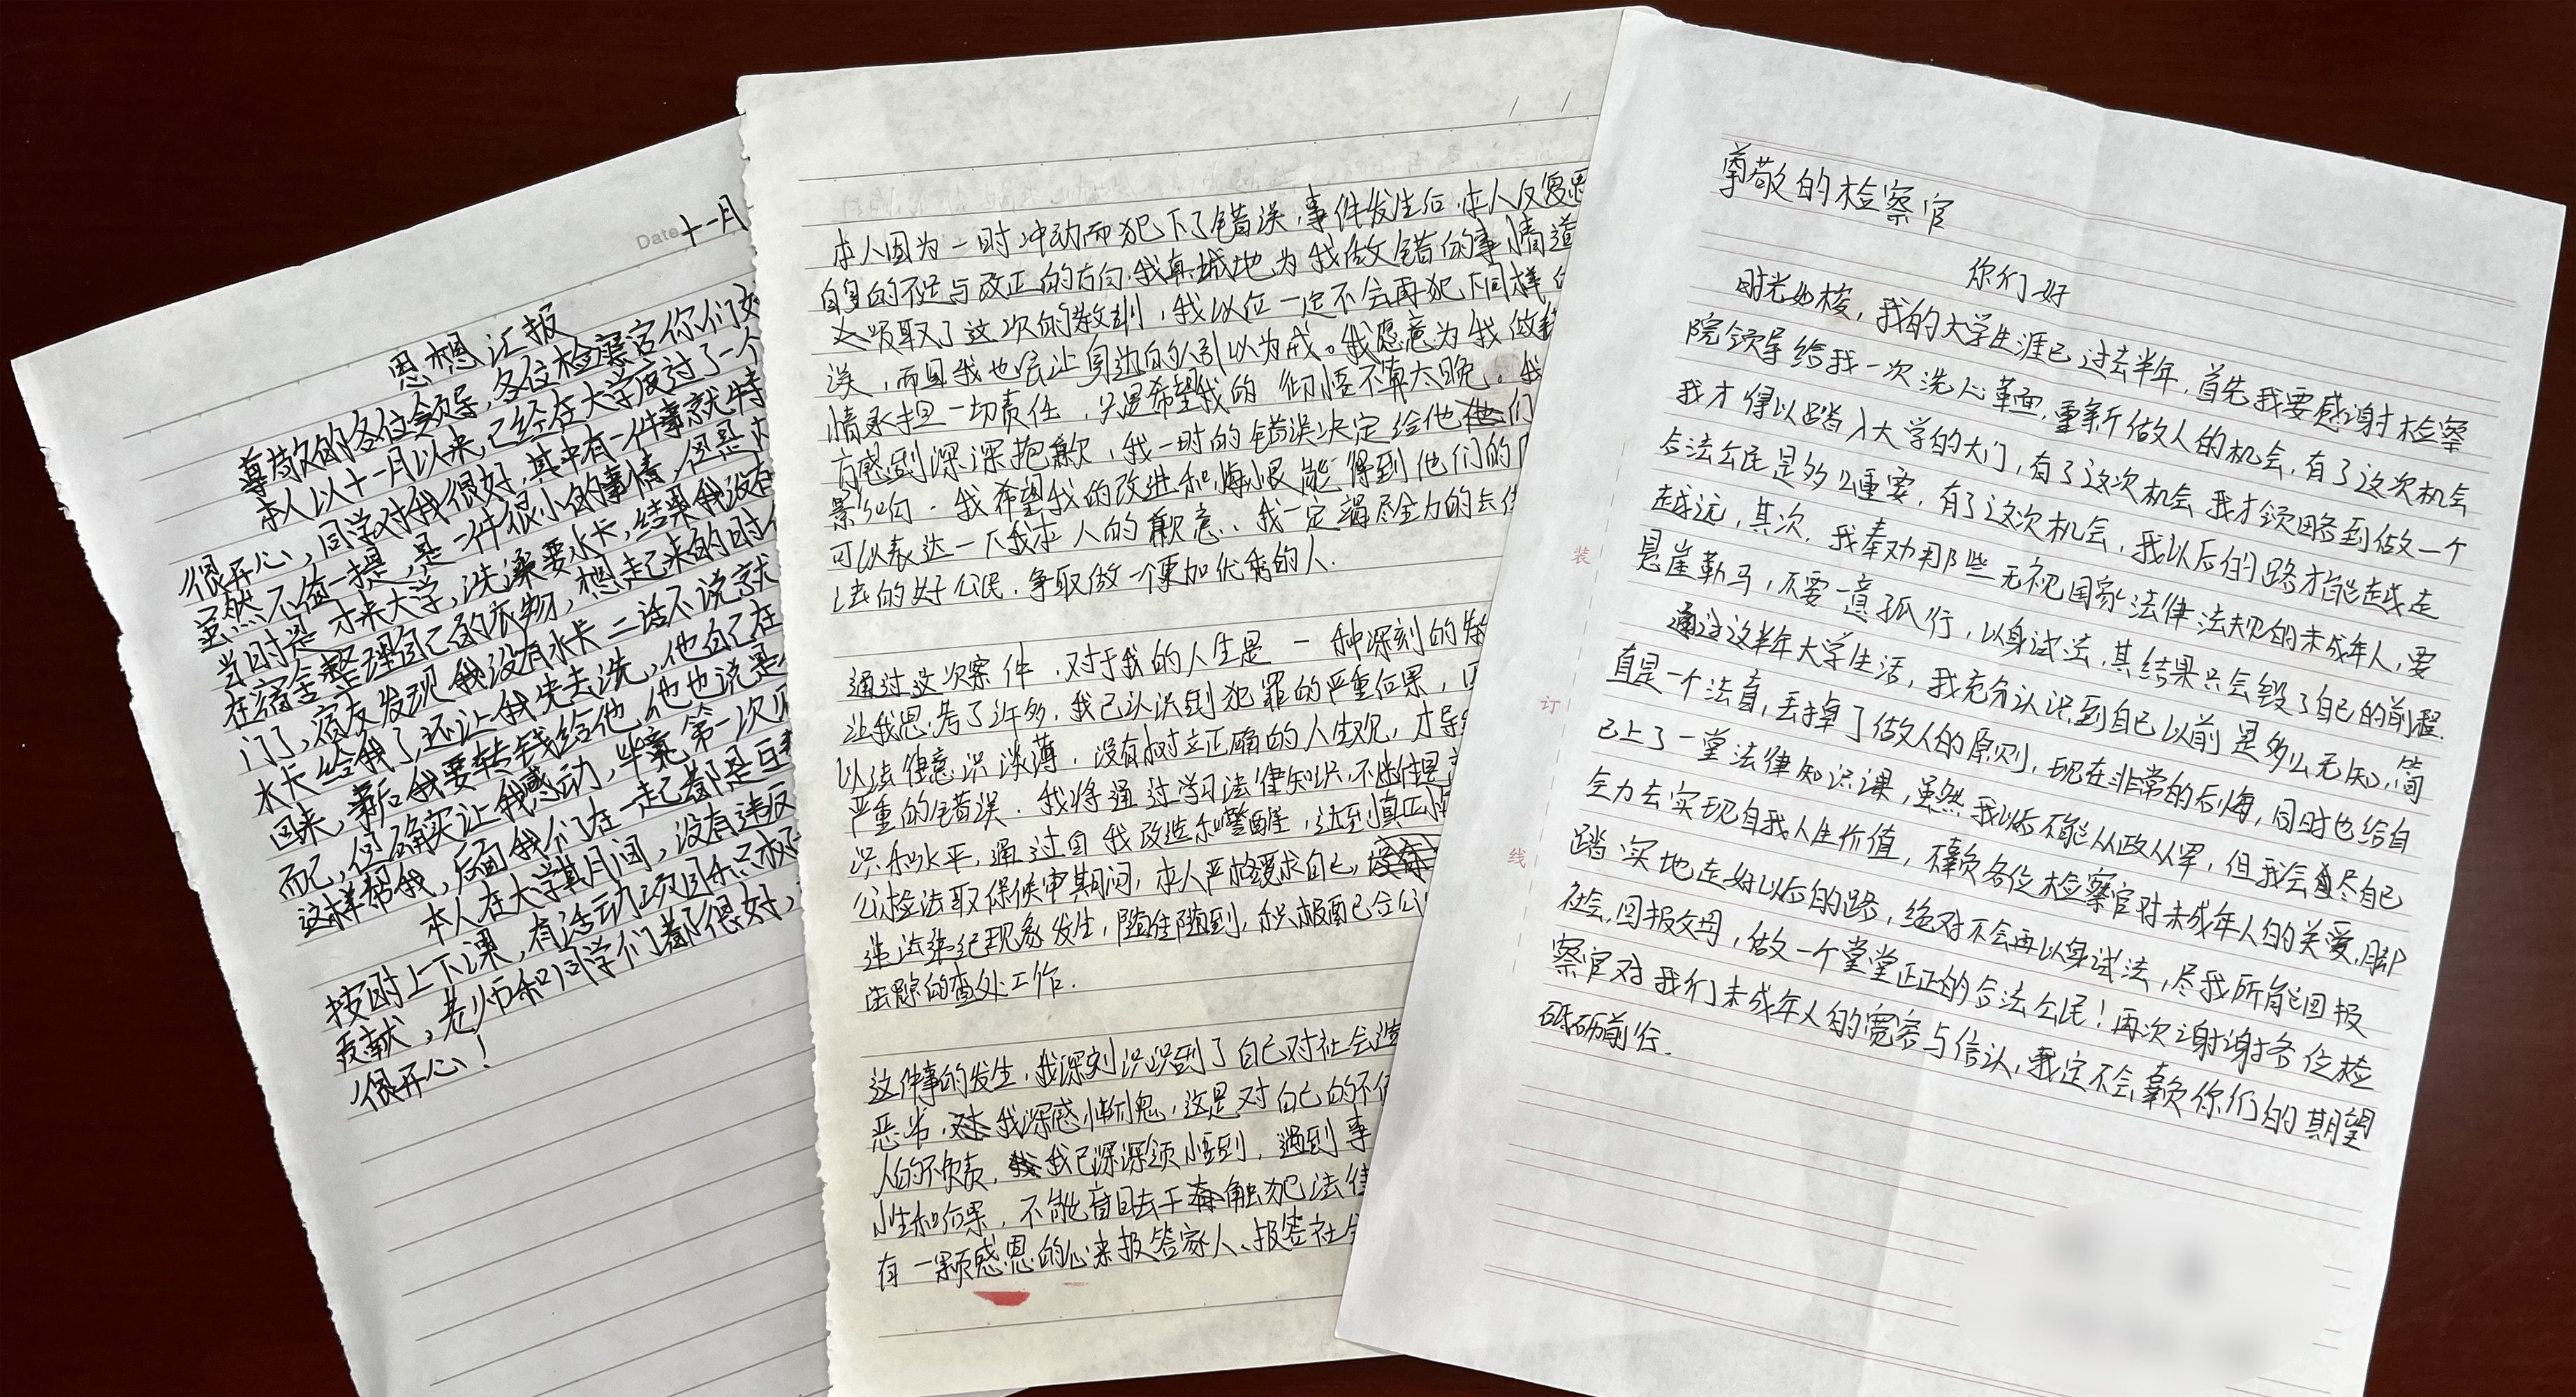 Date 十一月
思想汇报
尊敬的各位领导,各位检察官你们好
本人以十一月以来,已经在大学度过了一个
很开心,同学对我很好,其中有一件事就特
虽然不值一提,是一件很小的事情,但是
当时是才来大学,洗澡要水卡,结果我没有
在宿舍整理自己的衣物,想起来的时
门了,宿友发现我没有水卡二话不说就
水卡给我了,还让我先去洗,他自己在
回来,新后我要转钱给他,他也说是
而已,但确实让我感动,毕竟第一次
这样帮我,后面我们在一起都是互
本人在大学其月间,没有违反
按时上下课,有活动项目积极
贡献,老师和同学们都很好,
很开心!
/ /
本人因为一时冲动而犯下了错误,事件发生后,本人反复思
自身的不足与改正的方向,我真城地为我做错的事情道
吸取了这次的教训,我以后一定不会再犯下同样
误,而且我也会让身边的人引以为戒。我愿意为我做
情承担一切责任,只是希望我的彻悟不算太晚。我
方感到深深抱歉,我一时的错误决定给他他们
影响,我希望我的改进和悔恨能得到他们的
可以表达一下我本人的歉意、我一定竭尽全力的去
法的好公民,争取做一个更加优秀的人.
通过这次案件,对于我的人生是一种深刻的
让我思考了许多,我已认识到犯罪的严重后果,
以法律意识淡薄,没有树立正确的人生观,才导
严重的错误.我将通过学习法律知识,不断提
识和水平,通过自我改造和警醒,达到真正
公检法取保候审期间,本人严格要求自己,
违法违纪现象发生,随住随到,积极配合公
法院的查处工作.
这件事的发生,我深刻识识到了自己对社会造
恶劣,我深感惭愧,这是对自己的不
人的不负责,我已深深领悟到,遇到事
性和后果,不能盲目去干触犯法律
有一颗感恩的心来报答家人、报答社会
尊敬的检察官
你们好
时光如梭,我的大学生涯已过去半年,首先我要感谢检察
院领导给我一次洗心革面,重新做人的机会,有了这次机会
我才得以踏入大学的大门,有了这次机会我才领略到做一个
合法公民是多么重要,有了这次机会,我以后的路才能越走
越远,其次,我奉劝那些无视国家法律法规的未成年人,要
悬崖勒马,不要一意孤行,以身试法,其结果只会毁了自己的前程.
通过这半年大学生活,我充分认识到自己以前是多么无知,简
直是一个法盲,丢掉了做人的原则,现在非常的后悔,同时也给自
己上了一堂法律知识课,虽然我以后不能从政从军,但我会尽自己
全力去实现自我人生价值,不辜负各位检察官对未成年人的关爱,脚
踏实地走好以后的路,绝对不会再以身试法,尽我所能回报
社会,回报父母,做一个堂堂正正的合法公民!再次谢谢各位检
察官对我们未成年人的宽容与信认,我定不会辜负你们的期望
砥砺前行.
装
订
线